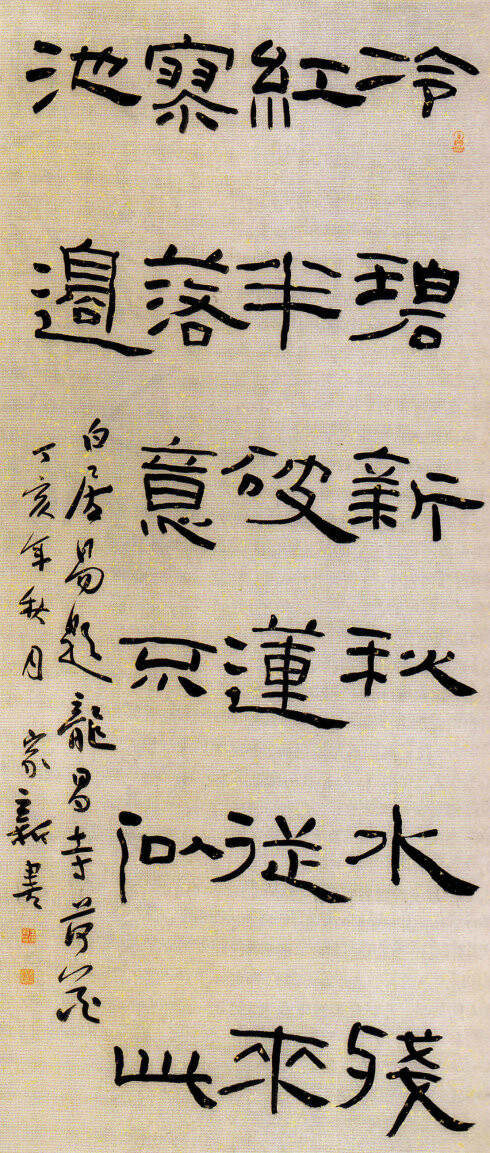 冷碧新秋水殘
紅半破蓮從來
寥落意不似此
池邊
白居易題龍昌寺荷花
丁亥年秋月 家書